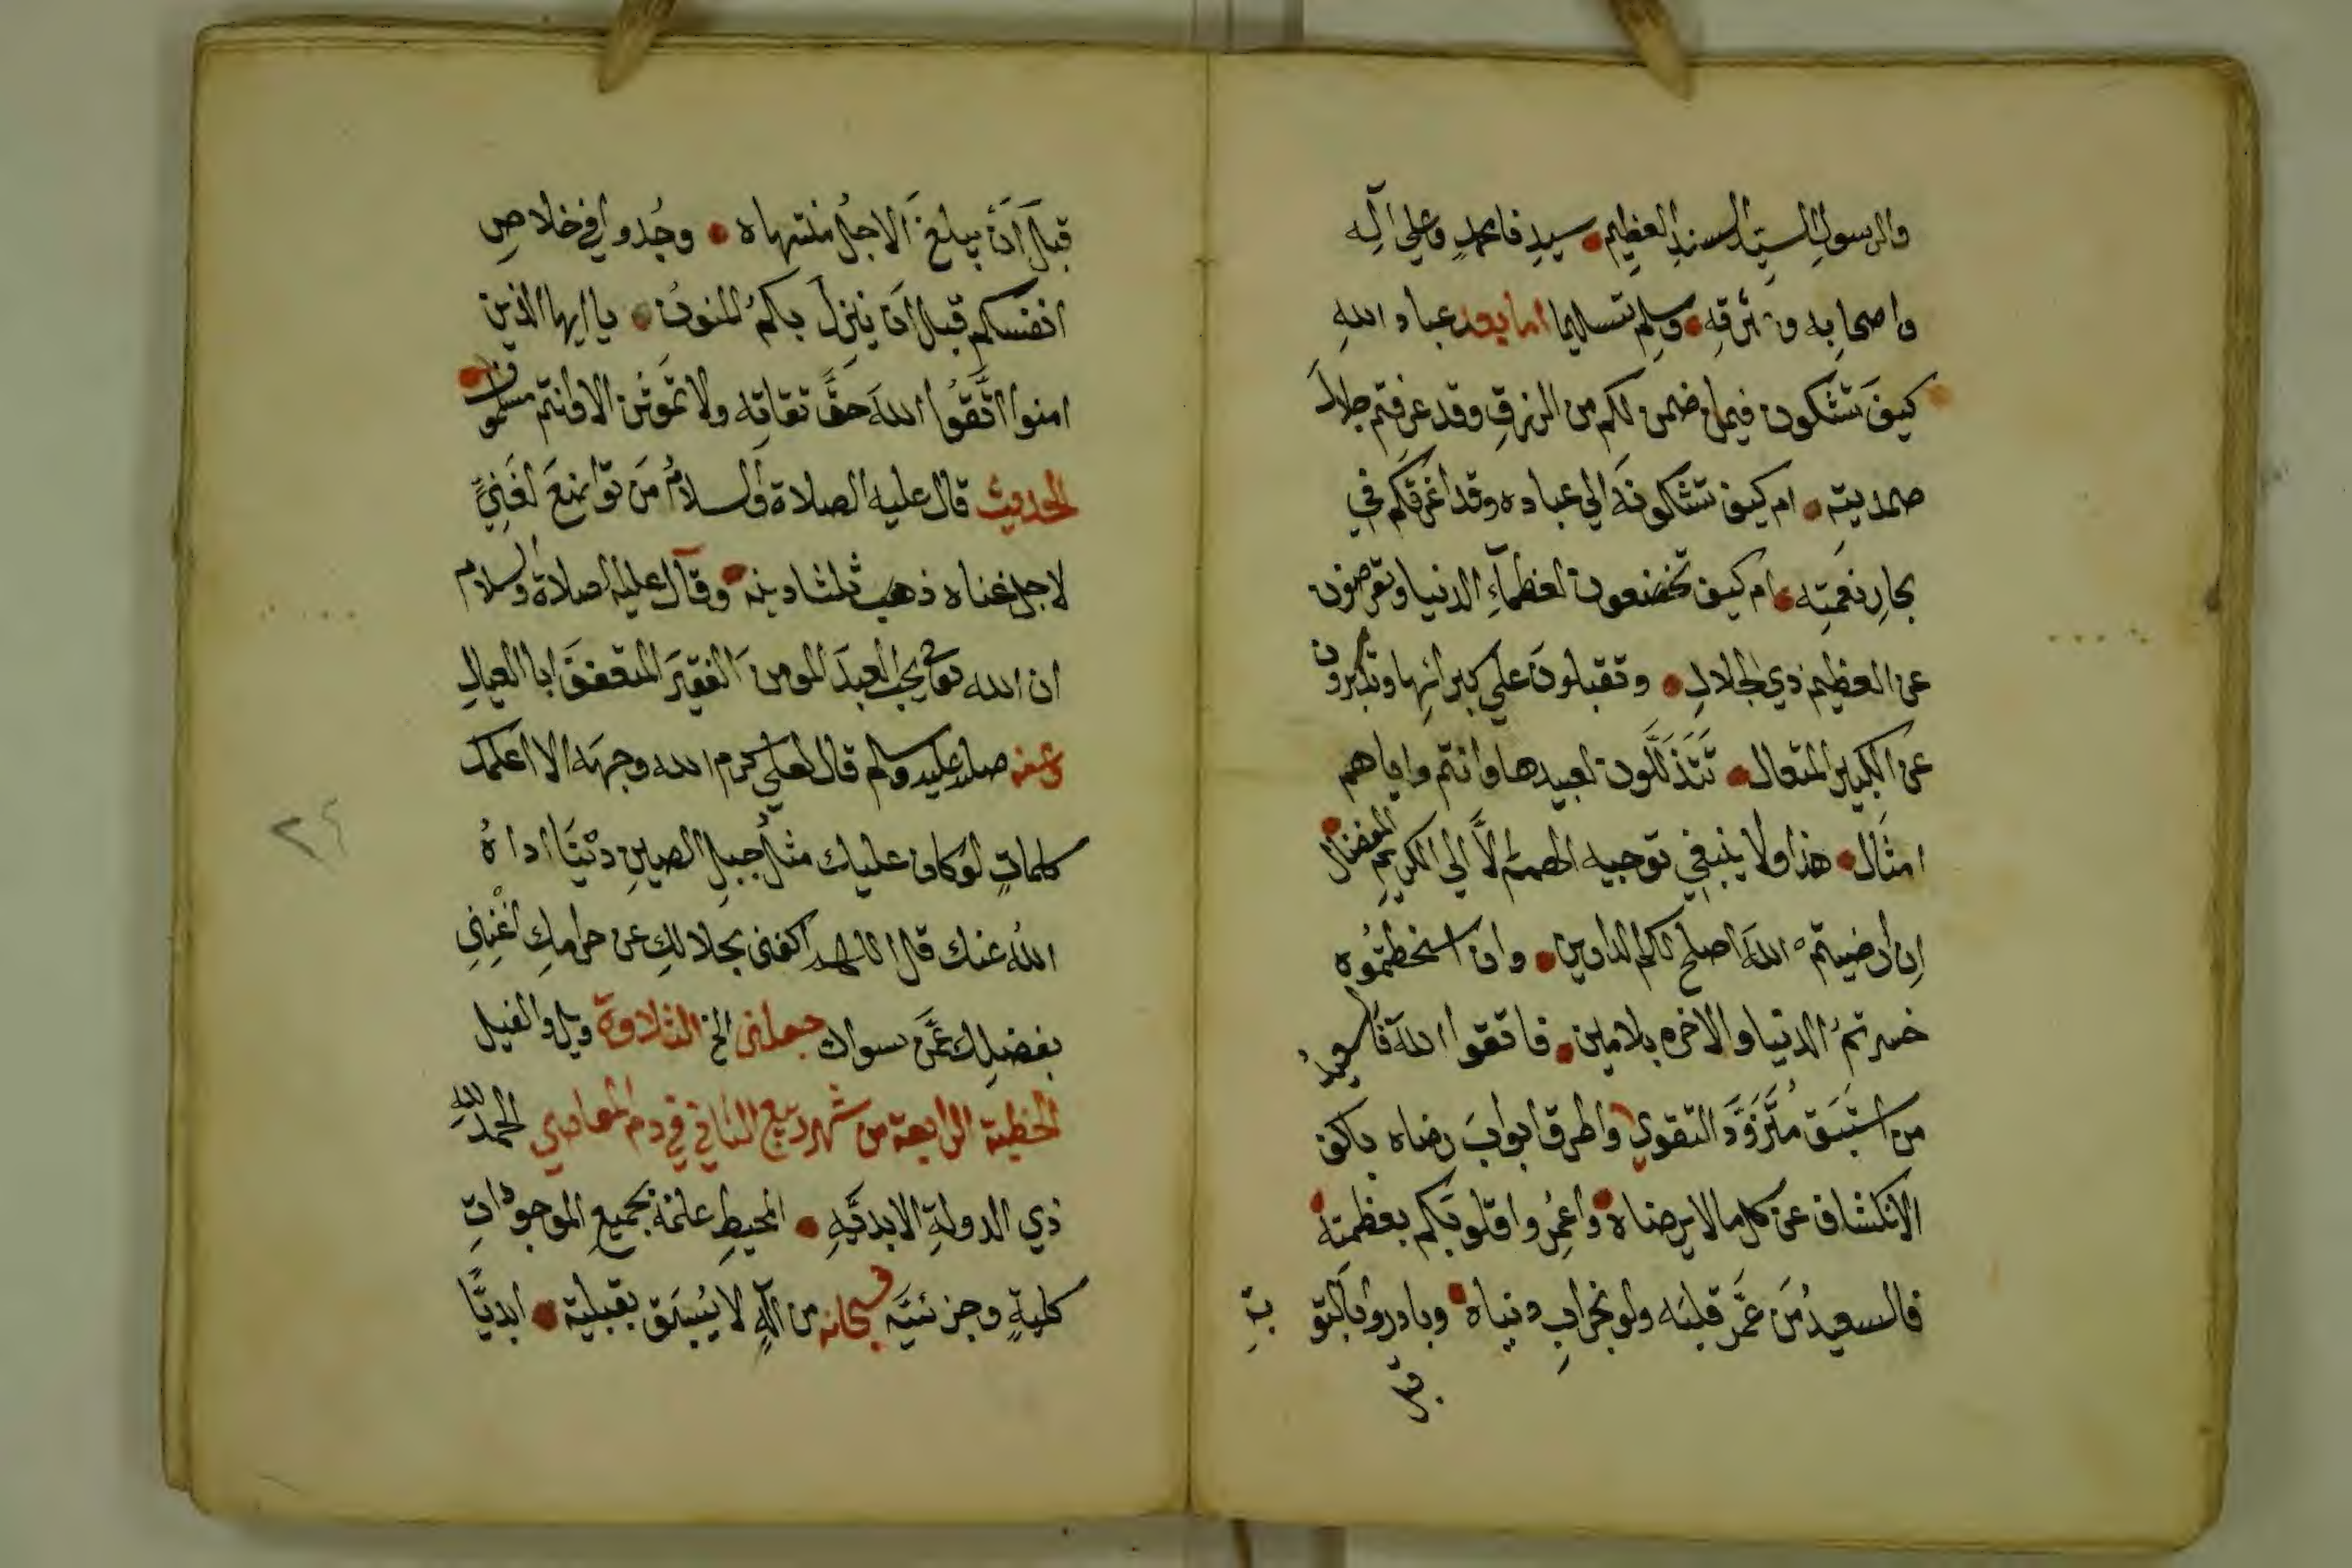 والرسول السيد السند العظيم • سيدنا محمد وعلى اله
واصحابه وعترقه • وسلم تسليما اما بعد عباد الله
كيف تشكون فيما ضمن لكم من الرزق وقد عرفتم جلال
صمديته • ام كيف تشكونه الي عباده وقد اغرقكم في
بحار نعمته • ام كيف تخضعون لعظماء الدنيا وتعرضون
عن العظيم ذي الجلال • وتقبلون علي كبرائها وتدبرون
عن الكبير المتعال • تتذللون لعبيدها وانتم واياهم
امثال • هذا ولا ينبغي توجيه الهمم الا الي الكريم المفضال •
ان ارضيتم الله اصلح لكم الدارين • وان اسخطتموه
خسرتم الدنيا والاخره بلامين • فاتقوا الله فالسعيد
من استبق متزود التقوي واطرق ابواب رضاه باكف
الانكشاف عن كل ما لا يرضاه • واعمروا قلوبكم بعظمته •
فالسعيد من عمر قلبه ولو بخراب دنياه • وبادروا بالتو
بة
قبل
قبل ان يبلغ الاجل منتهاه • وجدوا في خلاص
انفسكم قبل ان ينزل بكم المنون • يا ايها الذين
امنوا اتقوا الله حق تقاته ولا تموتن الا وانتم مسلمون •
الحديث قال عليه الصلاة والسلام من تواضع لغني
لاجل غناه ذهب ثلثا دينه • وقال عليه الصلاة والسلام
ان الله تعالي يحب العبد المومن الفقير المتعفف ابا العيال
وعنه صلي الله عليه وسلم قال لعلي كرم الله وجهه الا اعلمك
كلمات لو كان عليك مثل جبل الصين دينا اداه
الله عنك قال اللهم اكفني بحلالك عن حرامك اغنني
بفضلك عمن سواك جعلني الخ التلاوة ويل والفيل
الخطبة الرابعة من شهر ربيع الثاني في ذم المعاصي الحمد لله
ذي الدولة الابديه • المحيط علمه بجميع الموجودات
كلية وجزئيه فسبحانه من اله لا يسبق بقبلية • ابديا
٢٤